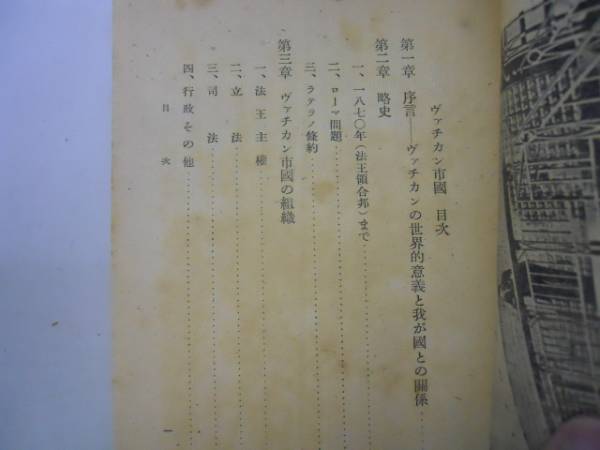 ヴァチカン市國 目次
第一章 序言――ヴァチカンの世界的意義と我が國との關係
第二章 略史
一、一八七〇年(法王領合邦)まで
二、ローマ問題
三、ラテラノ條約
第三章 ヴァチカン市國の組織
一、法王主權
二、立法
三、司法
四、行政その他
目次
一